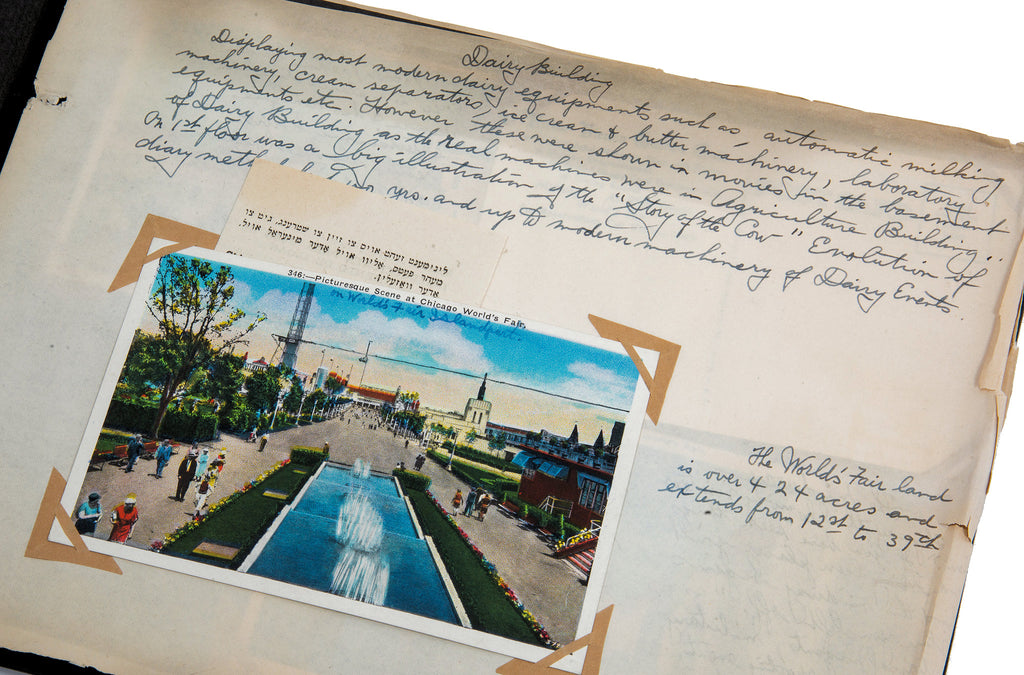 Dairy Building
Displaying most modern dairy equipments such as, automatic milking
machinery, cream separators, ice cream & butter machinery, laboratory
equipments etc. However these were shown in movies in the basement
of Dairy Building as the real machines were in Agriculture Building".
On 1st floor was a big illustration of the "Story of the Cow" Evolution of
diary yrs. and up to modern machinery of Dairy Events.
לינימענט זעהט אויס צו זיין צו שטרענג, גיט צו
מעהר פעטס, אָליוו אויל אָדער מינעראַל אויל.
אָדער וואַזעלין.
346:—Picturesque Scene at Chicago World's Fair.
on World's Fair Island
The World's Fair land
is over 424 acres and
extends from 12st to 39th